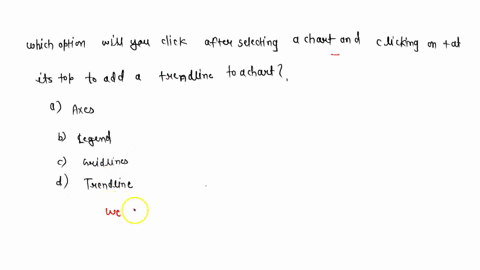 which option will you click after selecting a chart and clicking on + at
its top to add a trendline to a chart?
a) Axes
b) Legend
c) Gridlines
d) Trendline
we